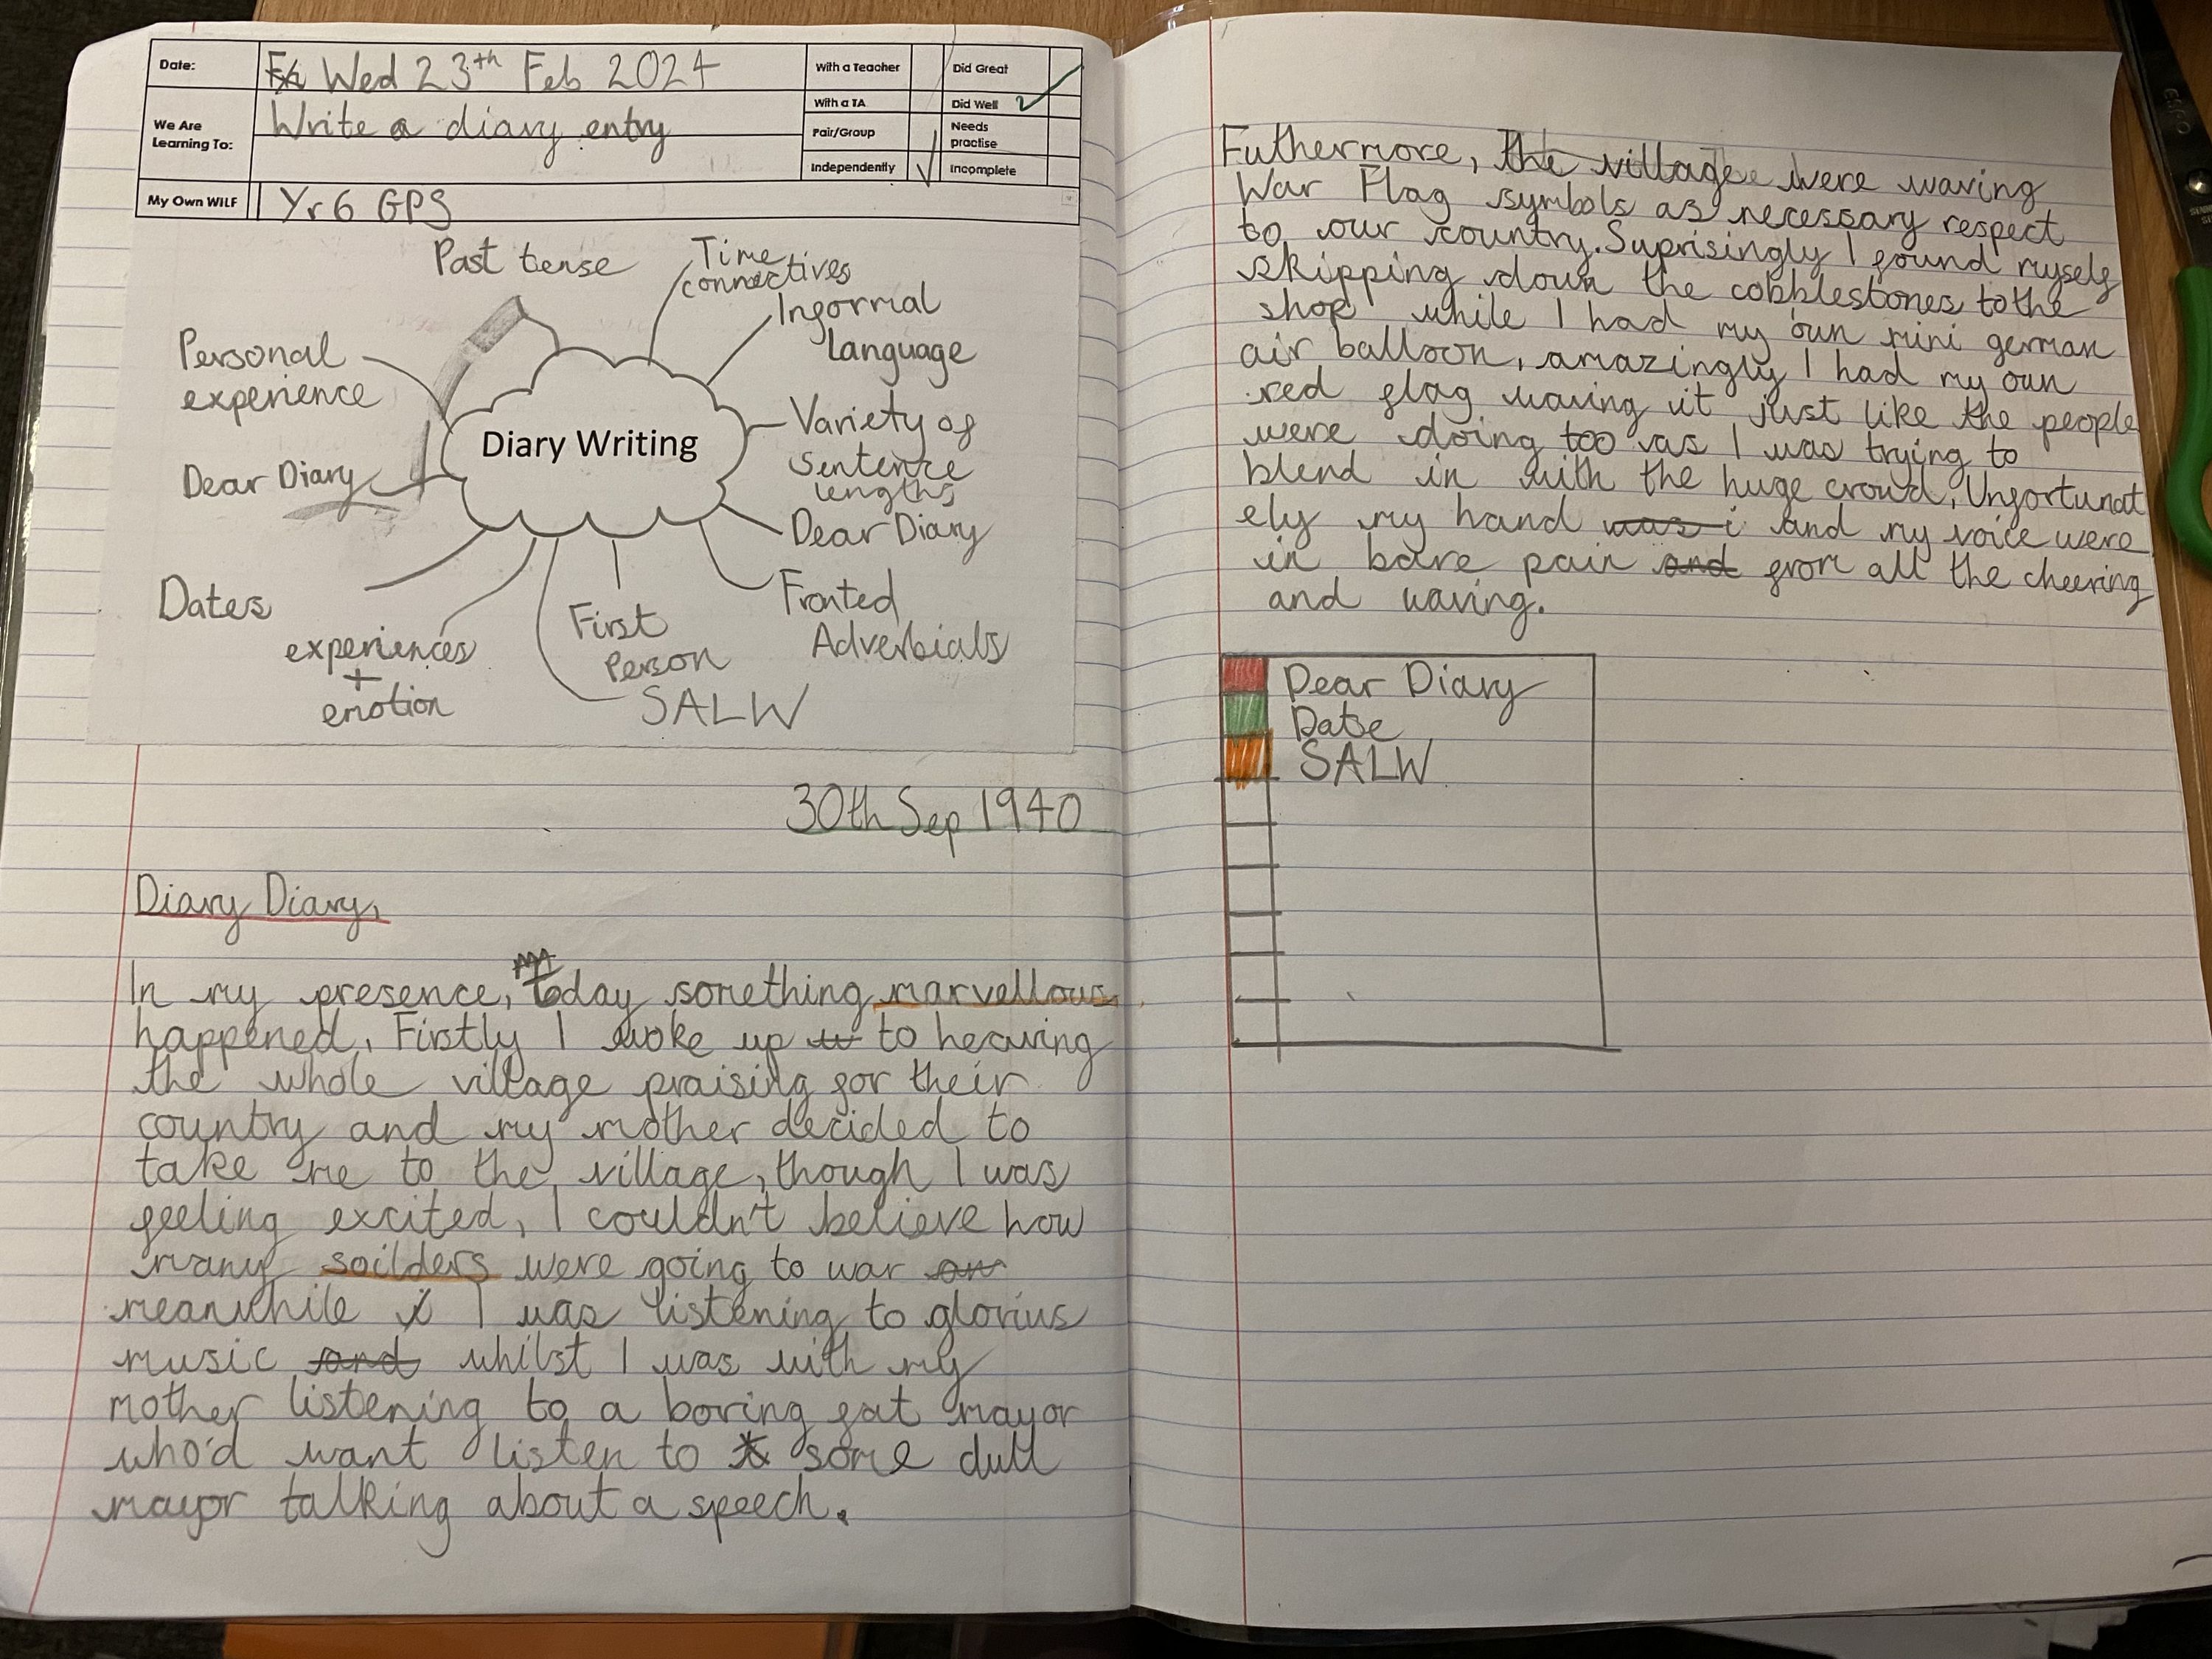 Date:
Wed 23th Feb 2024
We Are
Learning To:
Write a diary entry
My Own WILF
Yr6 GPS
With a Teacher
Did Great
With a TA
Did Well
Pair/Group
Needs
practise
Independently
Incomplete
Past tense
Time
connectives
Informal
language
Personal
experience
Variety of
sentence
lengths
Diary Writing
Dear Diary
Dear Diary
Dates
experiences
+
emotion
First
Person
SALW
Fronted
Adverbials
30th Sep 1940
Diary Diary,
In my presence, today something marvellous
happened. Firstly I woke up to hearing
the whole village praising for their
country and my mother decided to
take me to the village, though I was
feeling excited, I couldn't believe how
many soilders were going to war
meanwhile I was listening to glorius
music and whilst I was with my
mother listening to a boring fat mayor
who'd want listen to some dull
mayor talking about a speech.
Futhermore, the village were waving
War Flag symbols as necessary respect
to our country. Suprisingly I found myself
skipping down the cobblestones to the
shop while I had my own mini german
air balloon, amazingly I had my own
red flag waving it just like the people
were doing too as I was trying to
blend in with the huge crowd, Unfortunat
ely my hand was i and my voice were
in bare pain and from all the cheering
and waving.
Dear Diary
Date
SALW